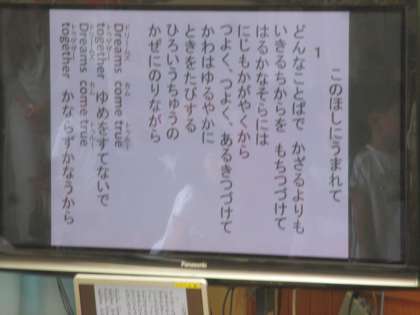 このほしにうまれて
1
どんなことばで かざるよりも
いきるちからを もちつづけて
はるかなそらには
にじもかがやくから
つよく、つよく、あるきつづけて
かわはゆるやかに
ときをたびする
ひろいうちゅうの
かぜにのりながら
Dreams come true
together ゆめをすてないで
Dreams come true
together かならずかなうから
Panasonic